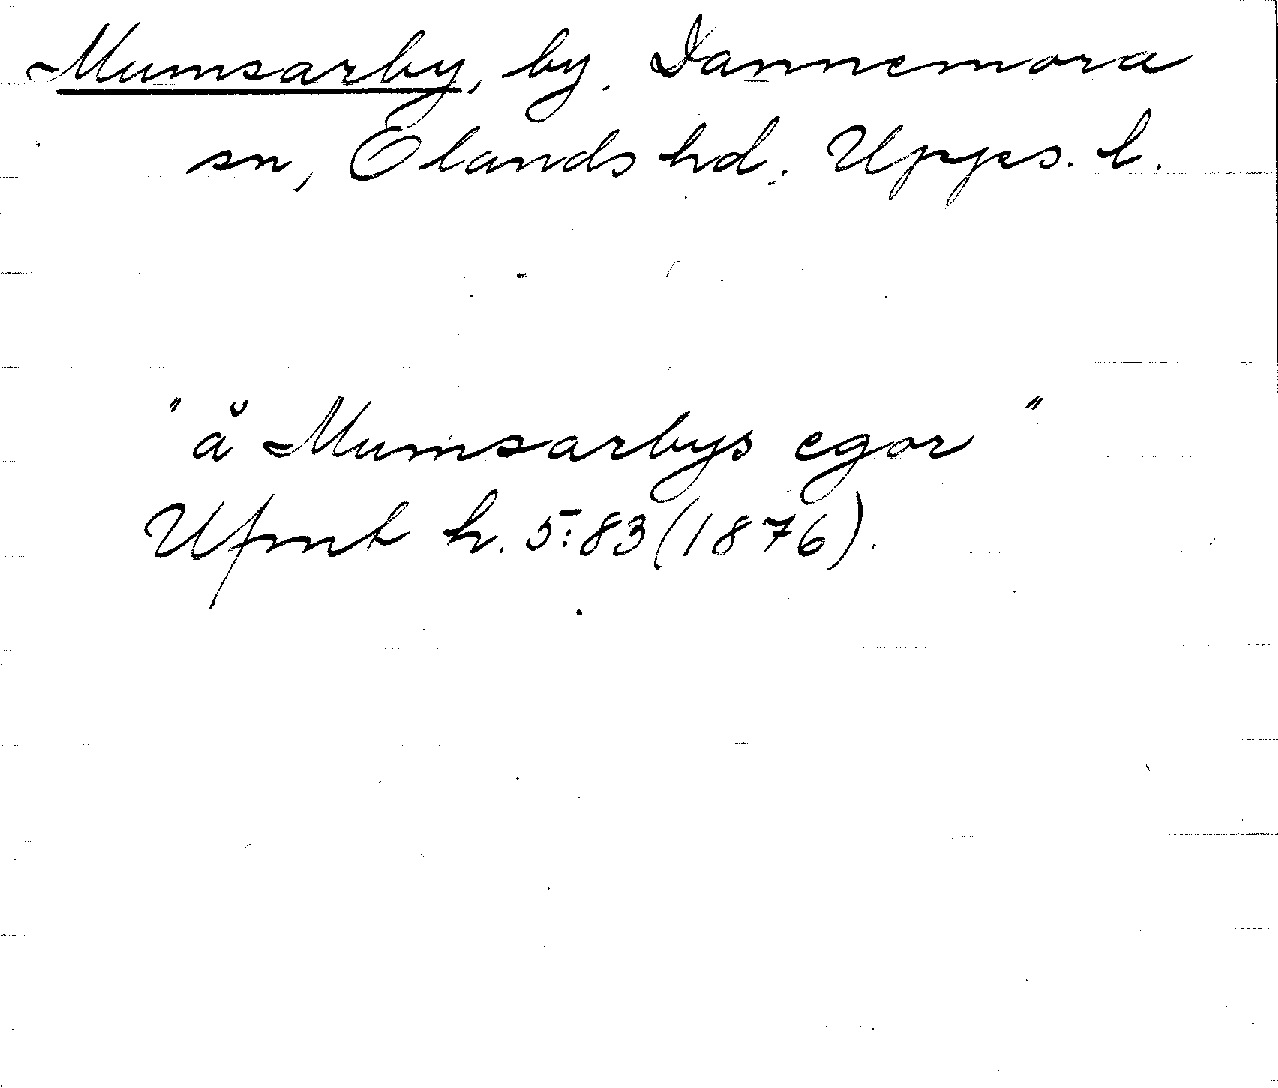 Mumsarby, by, Dannemora
sn, Ölands hd, Upps. l.
"å Mumsarbys egor"
Ufmt h. 5:83 (1876).